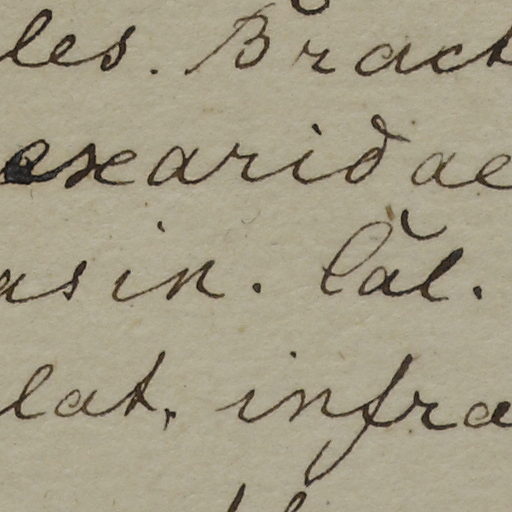 les. Bract
exaridae
asin. Cal.
lat, infra